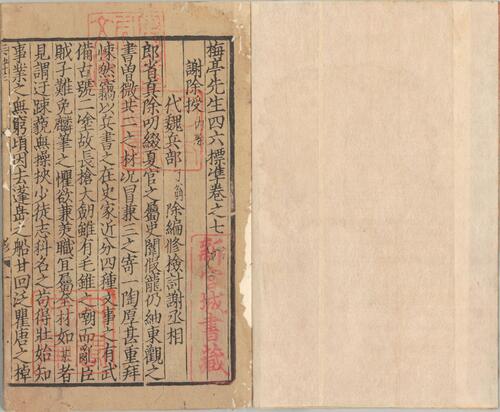 梅亭先生四六標準卷之七
謝除授 内無
代魏兵部 了翁 除編修檢討謝丞相
郎省真除叨綴夏官之屬史闈假寵仍紬東觀之
書曽微共二之材况冒兼三之寄一陶厚甚重拜
悚然竊以兵書之在史家近分四種文事之有武
備古號二塗故長槍大劒雖有毛錐之嘲而亂臣
賊子難免麟筆之懼欲兼美職宜屬全材如某者
見謂迂踈藐無操挾少徒志科名之苟得壯始知
事業之無窮頃因去蓬岳之船甘回泛瞿唐之棹
新宮城書藏